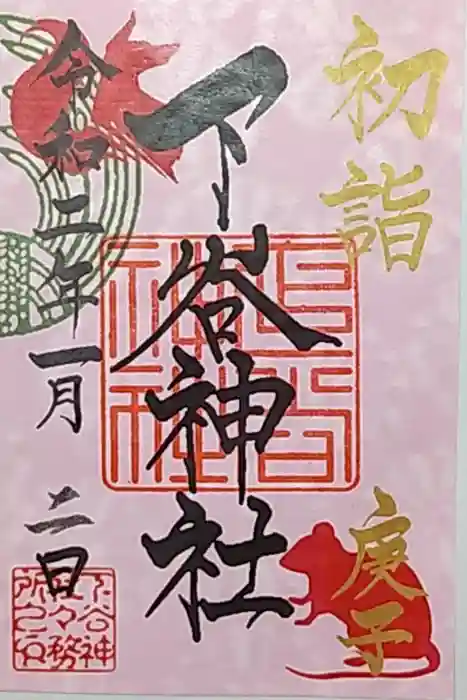 初詣
庚子
下谷神社
令和二年一月二日
下谷神社々務所之印